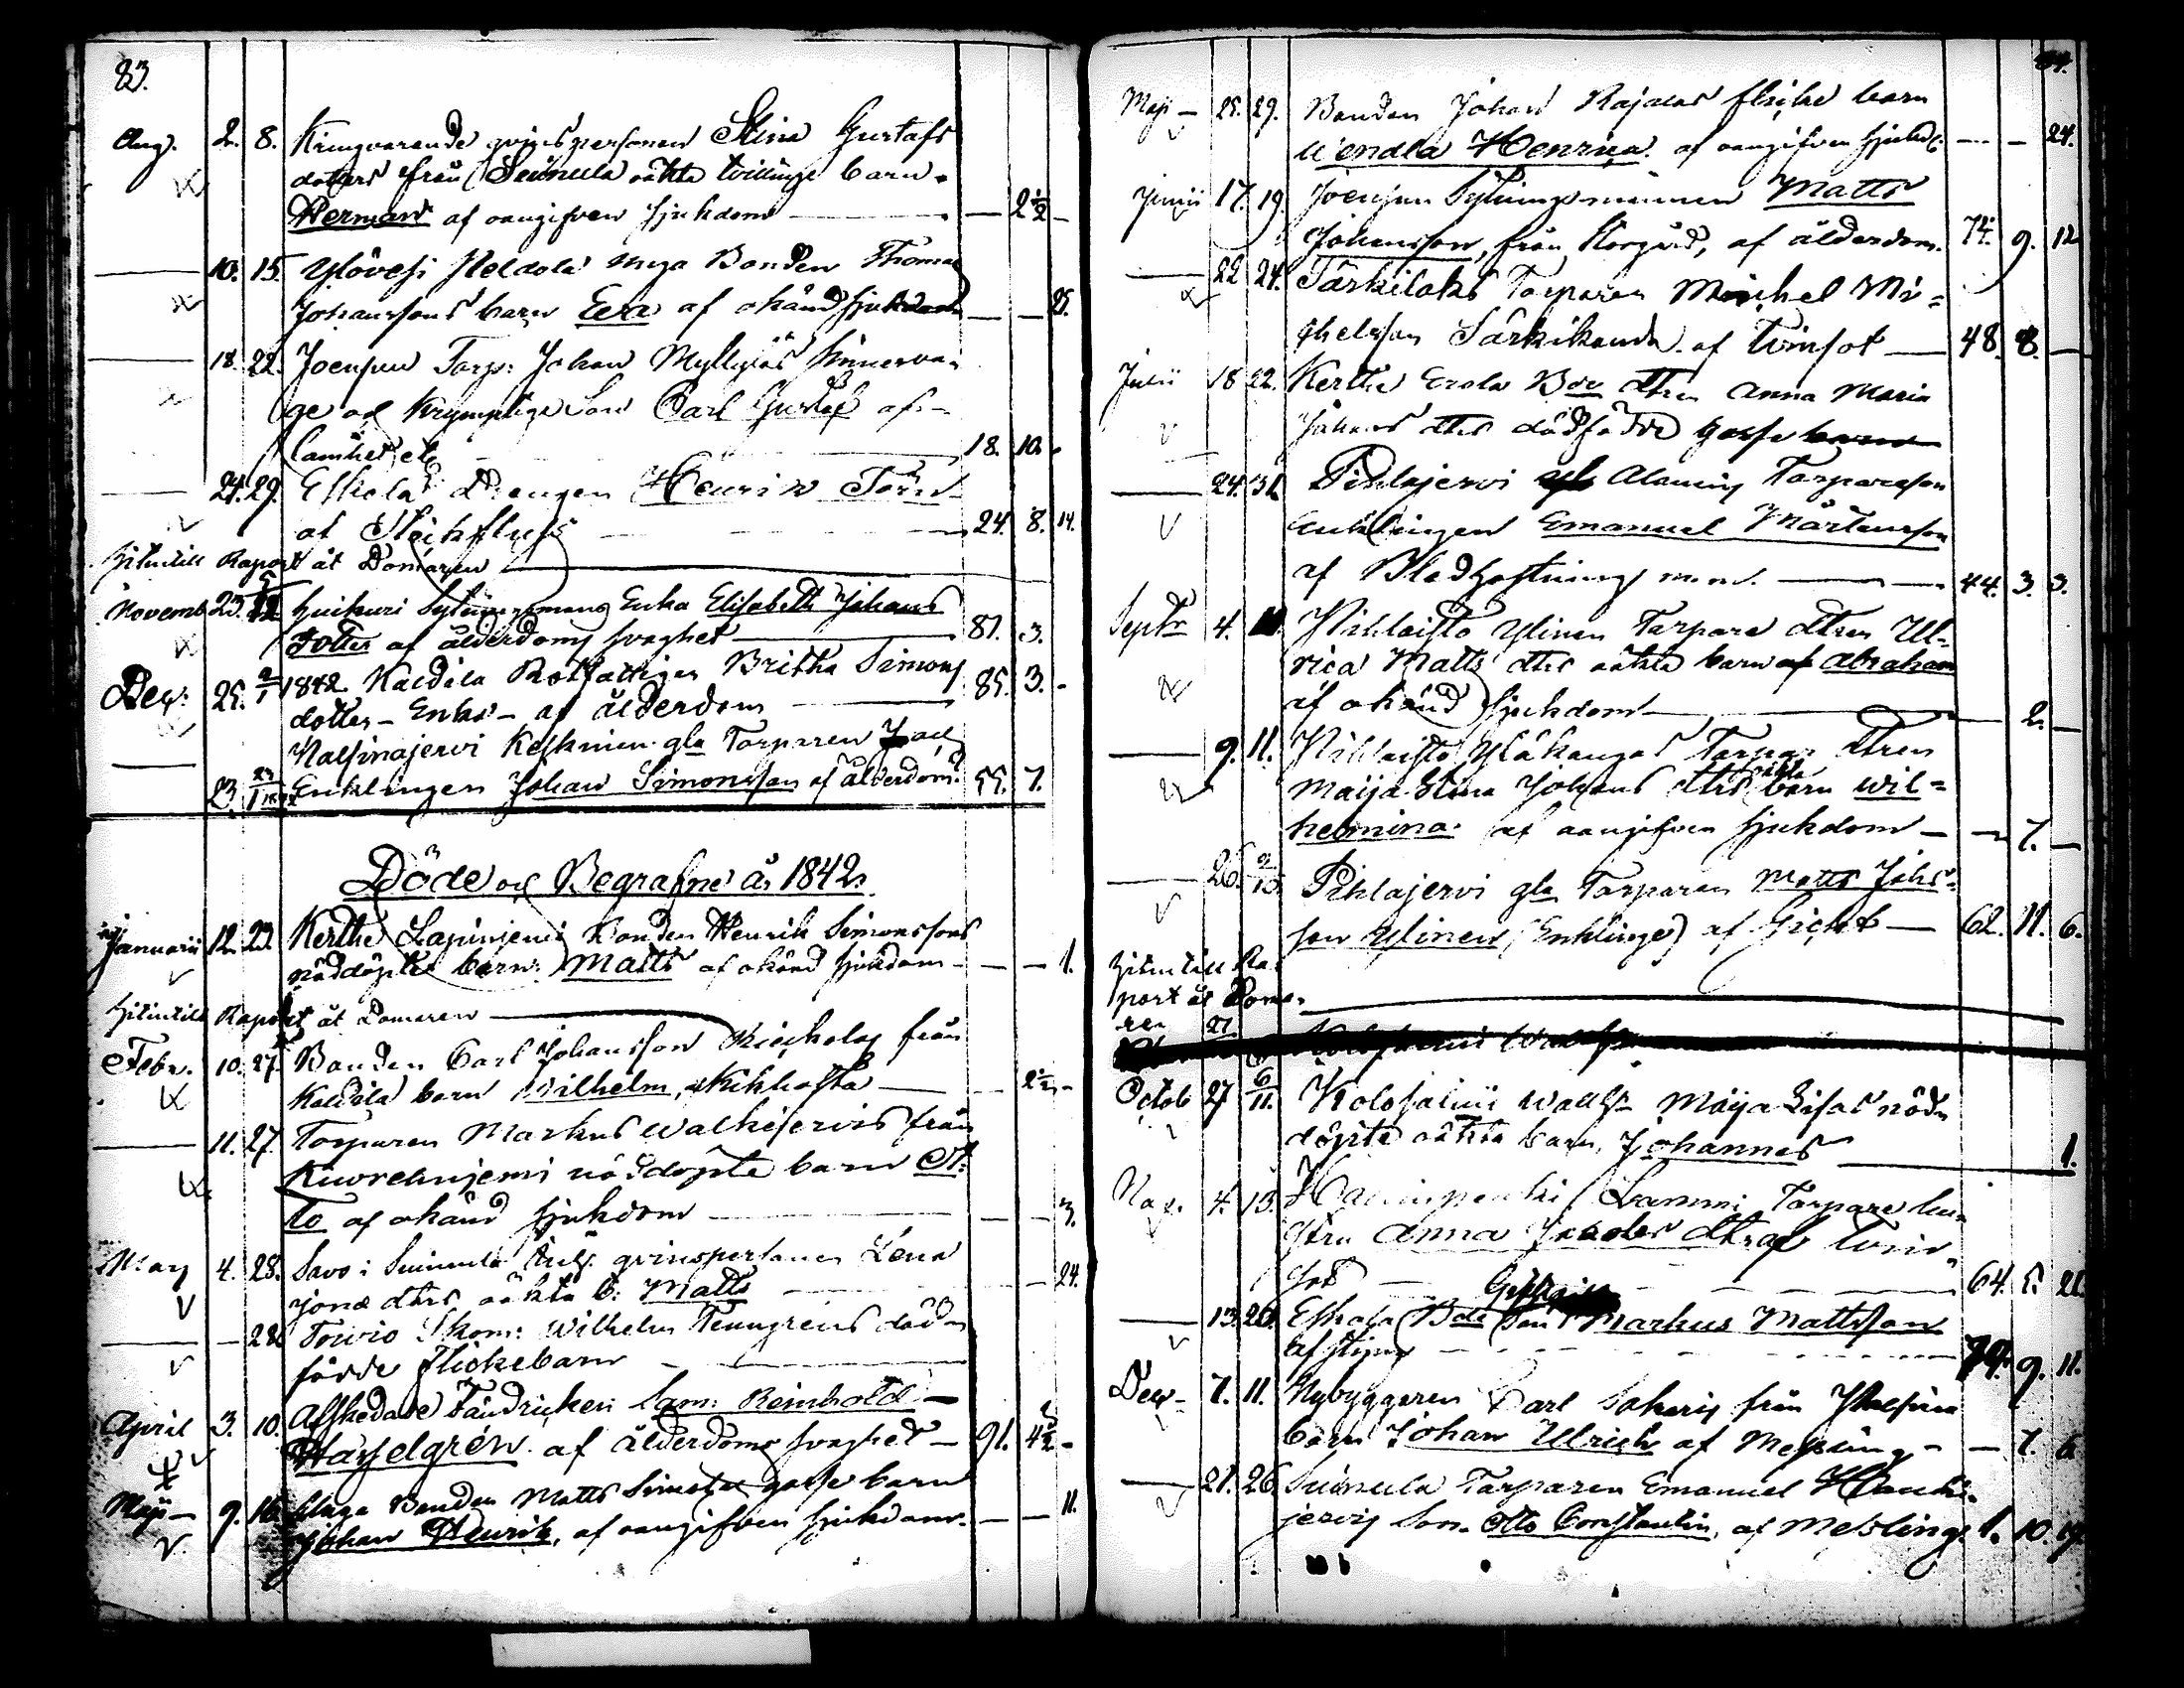 83.
Aug. 2. 8. Kringvarande qvinspersonen Stina Gustafs
dotters från Suinula oäkta tvillinge barn
Herman af oangifven sjukdom — — 2½ —
— 10. 15. Ylövesi Heldola nya Bonden Thomas
Johanssons barn Eva af okänd sjukdom — — 25.
— 18. 22. Joensuu Torp: Johan Myllyjäs
ge och Krymplige Son Carl Gustaf af
18. 10. -
— 24. 29. Eskola Drengen Henrik Törn
af 24. 8. 14.
Hitintill Raport åt Domaren
Novemb 23. Huikuri Sytningsmans Enka Elisabeth Johans
dotter af ålderdoms svaghet — 81. 3.
Dec: 25. 2/1 1842 Kaldila Rotfattigen Britha Simons
dotter - Enka - af ålderdom — 85. 3. -
Kalsinajervi Keskinen gla Torparen
— 23. Enklingen Johan Simonsson af ålderdom 55. 7.
Döde och Begrafne år 1842.
Januarii 12. 23. Kerthe Lapinjemi Bonden Henrik Simonssons
nöddöpte barn Matts af okänd sjukdom — — 1.
Hitintill Raport åt Domaren
Febr. 10. 27. Bonden Carl Johansson från
Kaldila barn Wilhelm, Kikhosta — 2½ -
— 11. 27. Torparen Markus Walkejervis från
Kuorehnjemi nöddöpte barn Ot-
to af okänd sjukdom — — 3.
May 4. 28. Savo: Suinula qvinspersonen Lena
Jonæ dtrs oäkta b: Matts — 24.
— — 28. Toivio Skom: Wilhelm Tenngrens död
födde flickebarn —
April 3. 10. Afskedade Fändricken Sam: Reinhold
Hasselgrén af ålderdoms svaghet — 91. 4½ -
Maji — 9. 16. Bonden Matts gosse barn
Johan Henrik, af oangifven sjukdom — — 11.
84.
Maji — 25. 29. Bonden Johan Rajalas flicke barn
Wendla Henrica af oangifven sjukd: — — 24.
Junii 17. 19. Joensuu Sytningsmannen Matts
Johansson, från Storgård, af ålderdom. 74. 9. 12
— 22 24. Särkilaks Torparen Michel Mi-
chelsson Särkikanda af tvinsot — 48. 8. —
Julii 18 22. Kerthe Erola Bde dtren Anna Maria
Johans dtrs dödfödde gosse barn
— 24. 31. Pihlajervi Alaning Torparesson
Enklingen Emanuel Mårtensson
af Blodhostning m.m. — 44. 3. 3.
Septr 4. 11. Pihlaisto Ylinen Torpare dtren Ul-
rica Matts dtrs oäkta barn af Abraham
af okänd sjukdom — 2. —
— 9. 11. Pihlaisto Yläkangas Torpar dtren
Maija Stina Johans dtrs oäkta barn Wil-
helmina af oangifven sjukdom — — 7. —
— 26. 2/10. Pihlajervi gla Torparen Matts Johs-
son Ylinen, (Enklinge) af Gickt — 62. 11. 6.
Hitintill Ra-
port åt Doma-
ren
Octob 27 6/11. Kolosalmi Wallsp Maija Lisas nöd-
döpte oäkta barn, Johannes — 1.
Nov. 4. 13. Lammi Torpare hu-
stru Anna dtr af tvin-
sot — 64. 5. 21
— 13. 20. Eskola Bde Son Markus Mattsson
af styng — 74. 9. 11.
Dec — 7. 11. Nybyggaren Carl Sakeris från
barn Johan Ulrich af Messling — — 7. 6
— 21. 26. Suinula Torparen Emanuel
jervis Son Otto Constantin, af Messling. 1. 10. 19.